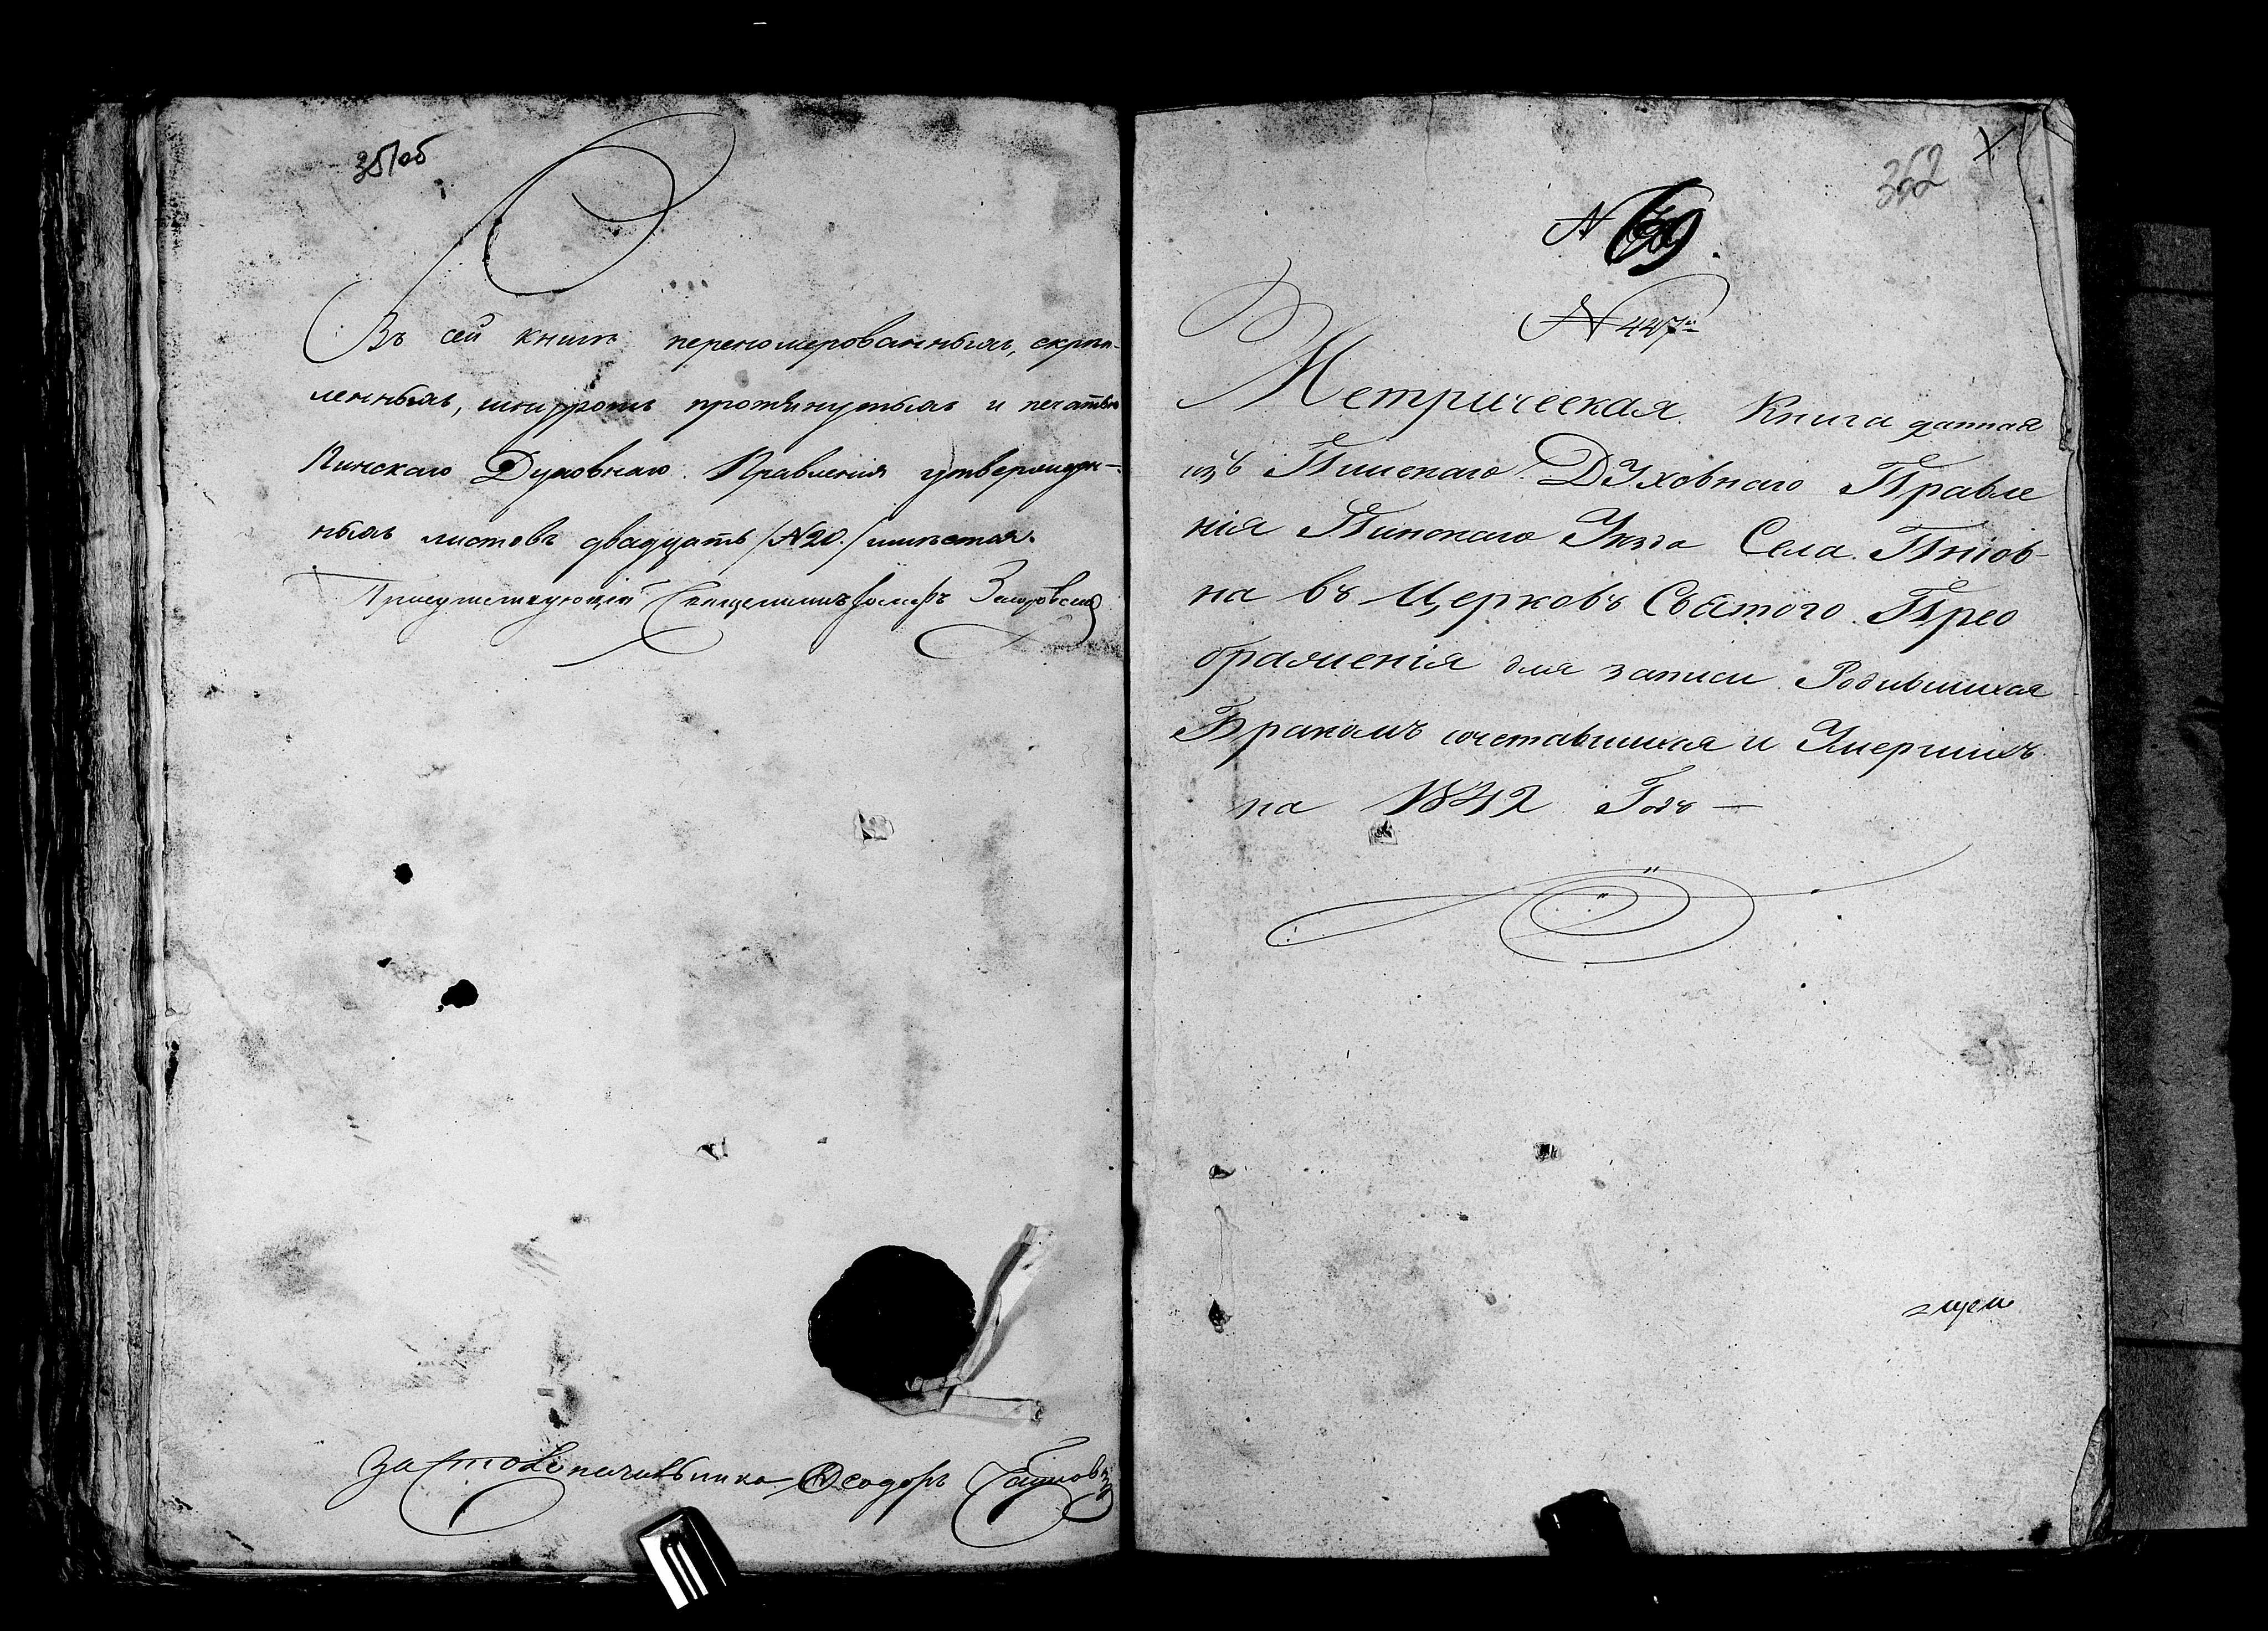 351об
Въ сей книге перенумерованныхъ, скреп-
ленныхъ, шнуромъ протянутыхъ и печатью
Пинскаго Духовнаго Правления утвержден-
ныхъ листовъ двадцать /№ 20./ имеется.
Присутствующій Священникъ
За Столоначальника Ѳеодоръ
352
№ 69.
№ 447й
Метрическая Книга данная
изъ Пинскаго Духовнаго Правле
нія Пинскаго Уезда Села
на въ Церковь Святого Прео
браженія для записи Родившихся
Бракомъ сочетавшихся и Умершихъ
на 1842 Годъ —